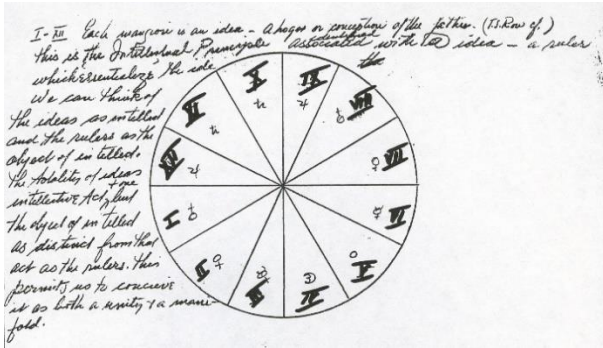 I - XII Each mansion is an idea - a logos or conception of the father. (T.S. Row cf.)
this is the Intellectual Principle associated with idea - a ruler
identified
which essentialize the idea
We can think of
the ideas as intellect
and the rulers as the
object of intellect.
The totality of ideas
one
intellective Act, but
the object of intellect
as distinct from that
act as the rulers. this
permits us to conceive
it as both a unity & a mani-
fold.
X
IX
XI
VIII
XII
VII
I
VI
II
V
III
IV